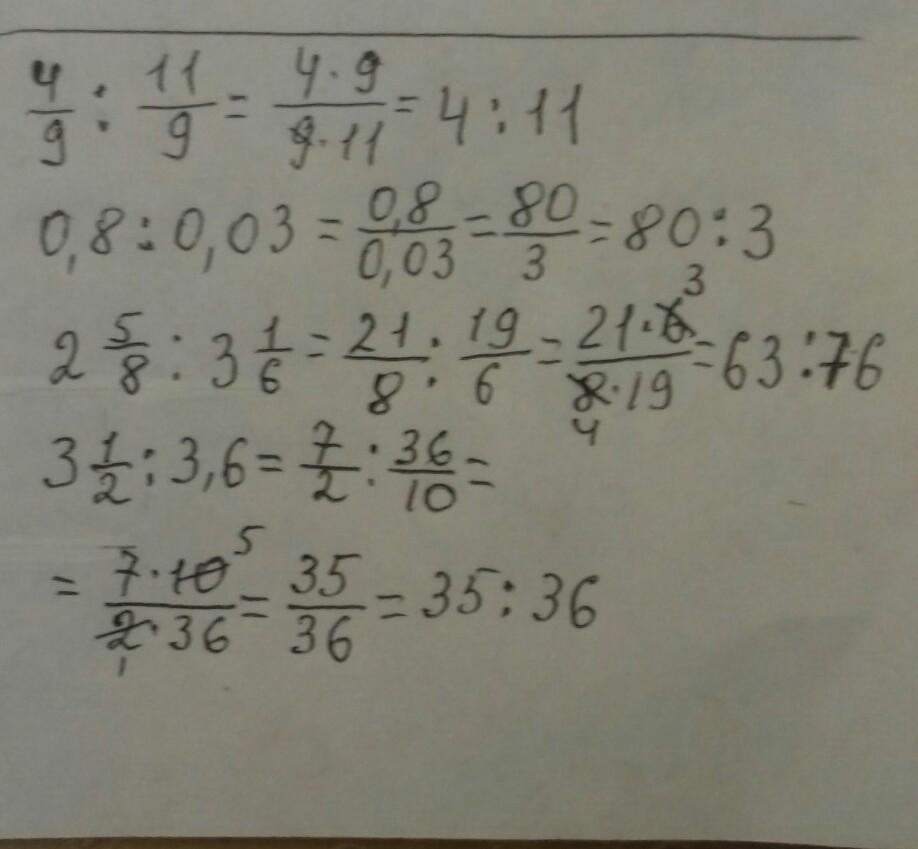 4/9 : 11/9 = 4·9/9·11 = 4 : 11
0,8 : 0,03 = 0,8/0,03 = 80/3 = 80 : 3
2 5/8 : 3 1/6 = 21/8 : 19/6 = 21·6 3/8·19 4 = 63 : 76
3 1/2 : 3,6 = 7/2 : 36/10 =
= 7·10 5/2·36 1 = 35/36 = 35 : 36